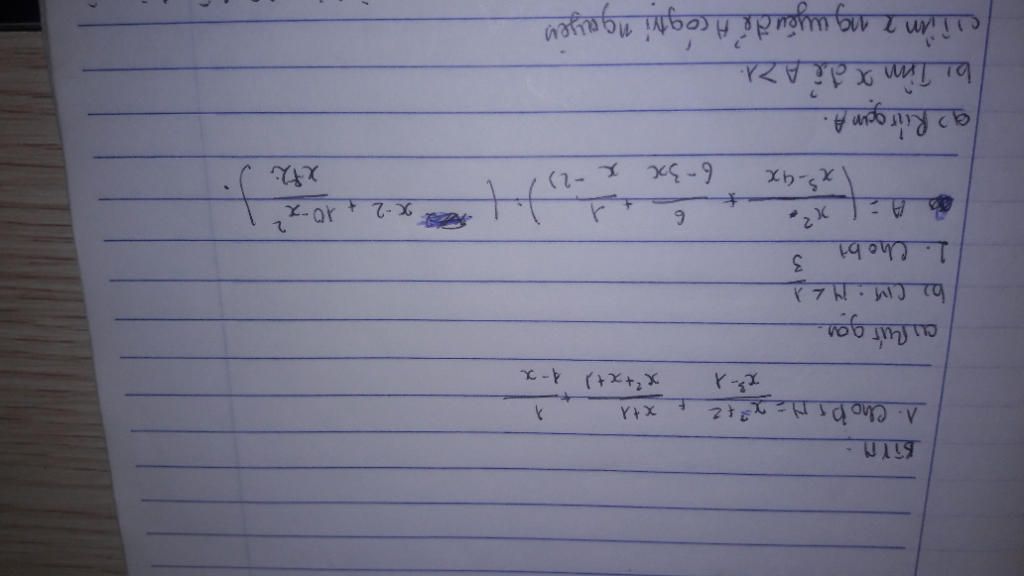 BTVN.
1. Cho bt M = \frac{x^2+2}{x^3-1} + \frac{x+1}{x^2+x+1} + \frac{1}{1-x}
a, Rút gọn.
b, CM: M < \frac{1}{3}
2. Cho bt
A = ( \frac{x^2}{x^3-4x} + \frac{6}{6-3x} + \frac{1}{x-2} ) : ( x-2 + \frac{10-x^2}{x+2} ).
a, Rút gọn A.
b, Tìm x để A > 1.
c, Tìm x nguyên để A có gtri nguyên